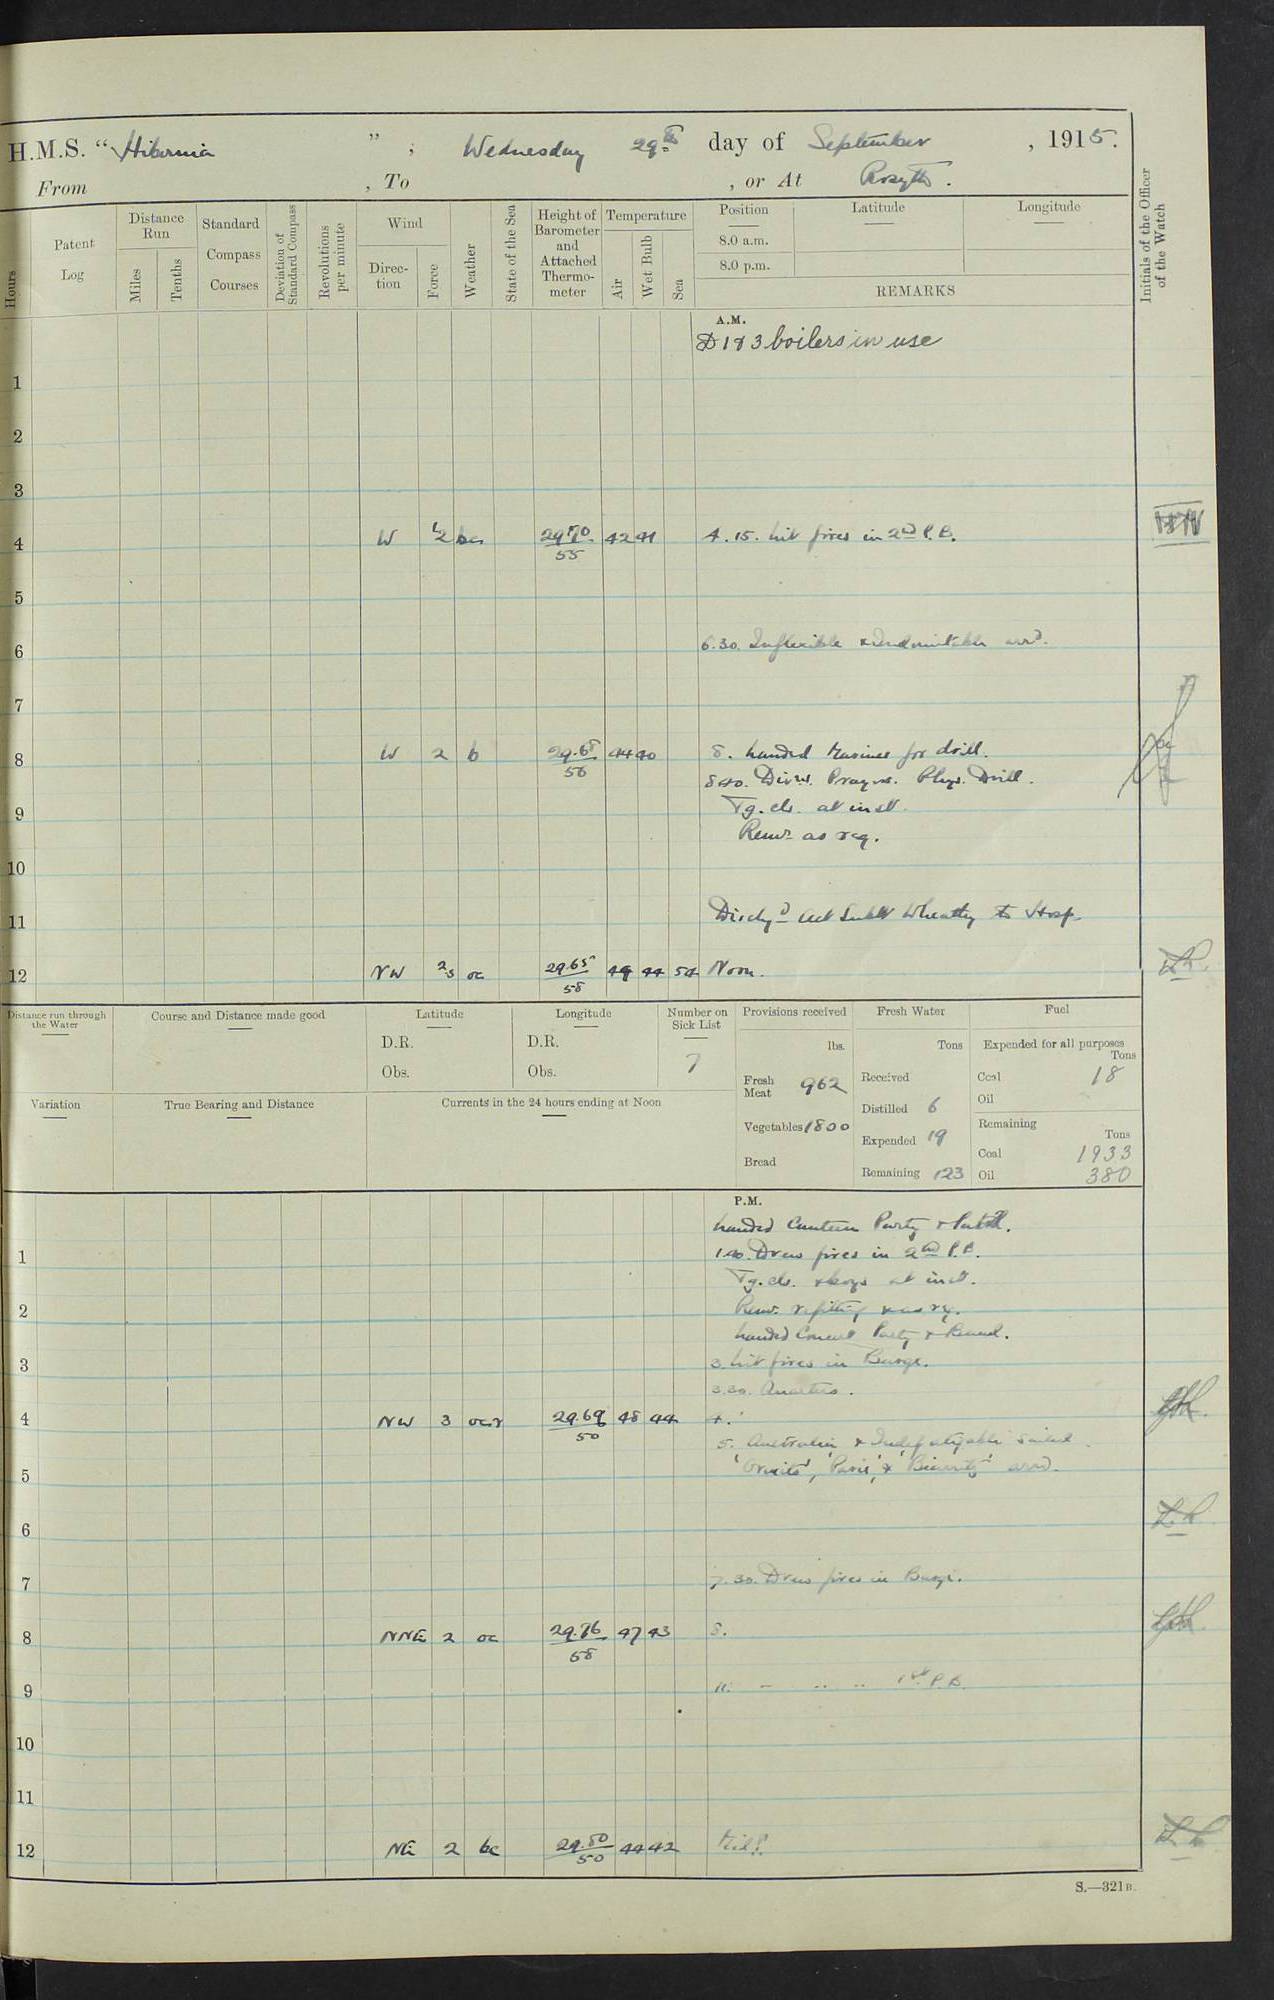 H.M.S. "Hibernia" ; Wednesday 29th day of September , 1915.
From , To , or At Rosyth.
Hours
Patent Log
Distance Run
Miles
Tenths
Standard Compass Courses
Deviation of Standard Compass
Revolutions per minute
Wind
Direction
Force
Weather
State of the Sea
Height of Barometer and Attached Thermometer
Temperature
Air
Wet Bulb
Sea
Position
8.0 a.m.
8.0 p.m.
Latitude
Longitude
REMARKS
Initials of the Officer of the Watch
A.M.
D 1 & 3 boilers in use
1
2
3
4 W 1/2 bc 29.70/55 42 41 4.15. Lit fires in 2nd P.B.
5
6 6.30. Inflexible & Indomitable arrd.
7
8 W 2 b 29.68/56 44 40 8. Landed Marines for drill.
8.40. Divns. Prayers. Phys. Drill.
9 Tg. cls. at inst.
Remr as req.
10
11 Dischgd Act Sublt Wheatley to Hosp.
12 NW 2/3 oc 29.65/58 49 44 54 Noon.
Distance run through the Water
Course and Distance made good
Latitude
D.R.
Obs.
Longitude
D.R.
Obs.
Number on Sick List
7
Provisions received
lbs.
Fresh Meat 962
Vegetables 1800
Bread
Fresh Water
Tons
Received
Distilled 6
Expended 19
Remaining 123
Fuel
Expended for all purposes
Tons
Coal 18
Oil
Remaining
Tons
Coal 1933
Oil 380
Variation
True Bearing and Distance
Currents in the 24 hours ending at Noon
P.M.
Landed Canteen Party & Patrol.
1 1.40. Drew fires in 2nd P.B.
Tg. cls. & boys at inst.
2 Remr. refitting & as req.
Landed Concert Party &
3 3. Lit fires in Barge.
3.30. Quarters.
4 NW 3 ocr 29.69/50 48 44 4.
5. Australia & Indefatigable sailed.
5 arrd.
6
7 7.30. Drew fires in Barge.
8 NNE 2 oc 29.76/58 47 43 8.
9 11. " " " 1st P.B.
10
11
12 NE 2 bc 29.80/50 44 42 Midt.
S.—321B.